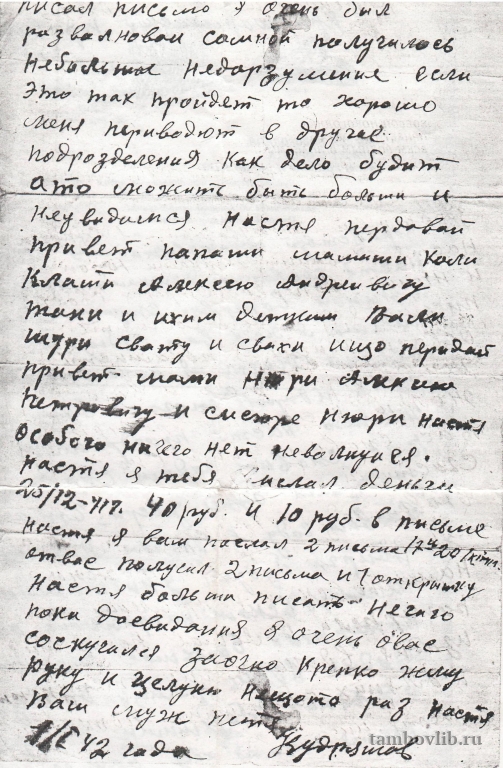 писал письмо я очень был
развалнован самной получилось
небальшое недоразумение если
это так пройдет то харошо
меня периводют в другае
подрозделения как дело будит
ато можить быть больши и
неувидимся Настя передавай
привет папаши мамаши Коли
Клаши Алексею Андреивичу
Тани и ихим деткам Вали
Шури Свату и свахи ищо передай
привет мами Нюри Алексею
Петровичу и систре Нюри Настя
Особого ничего нет неволнуися.
Настя я тебя послал деньги
25/12-41г. 40 руб. и 10 руб. в письме
Настя я вам паслал 2 письма 17 и 20/
отвас полусил 2 письма и 1 открытку
Настя больша писать нечаго
пока досвидания я очень овас
соскучился заочно крепко жму
руку и целую раз Настя
Ваш муж петя
1/I 42 года Кудряшов
tambovlib.ru